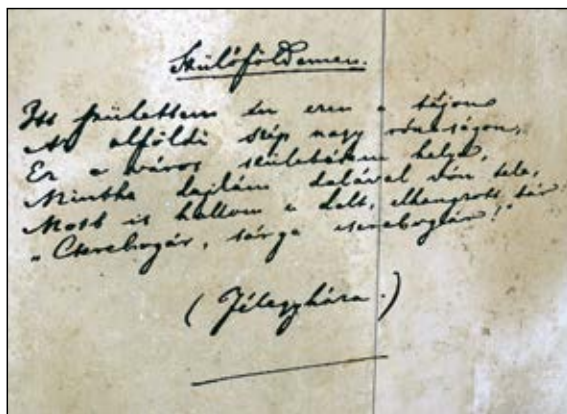 Szülőföldemen.
Itt születtem én ezen a tájon
Az alföldi szép nagy rónaságon,
Ez a város születésem helye,
Mintha dajkám dalával vón tele,
Most is hallom e dalt, elhangzott bár:
„Cserebogár, sárga cserebogár!"
(Félegyháza.)